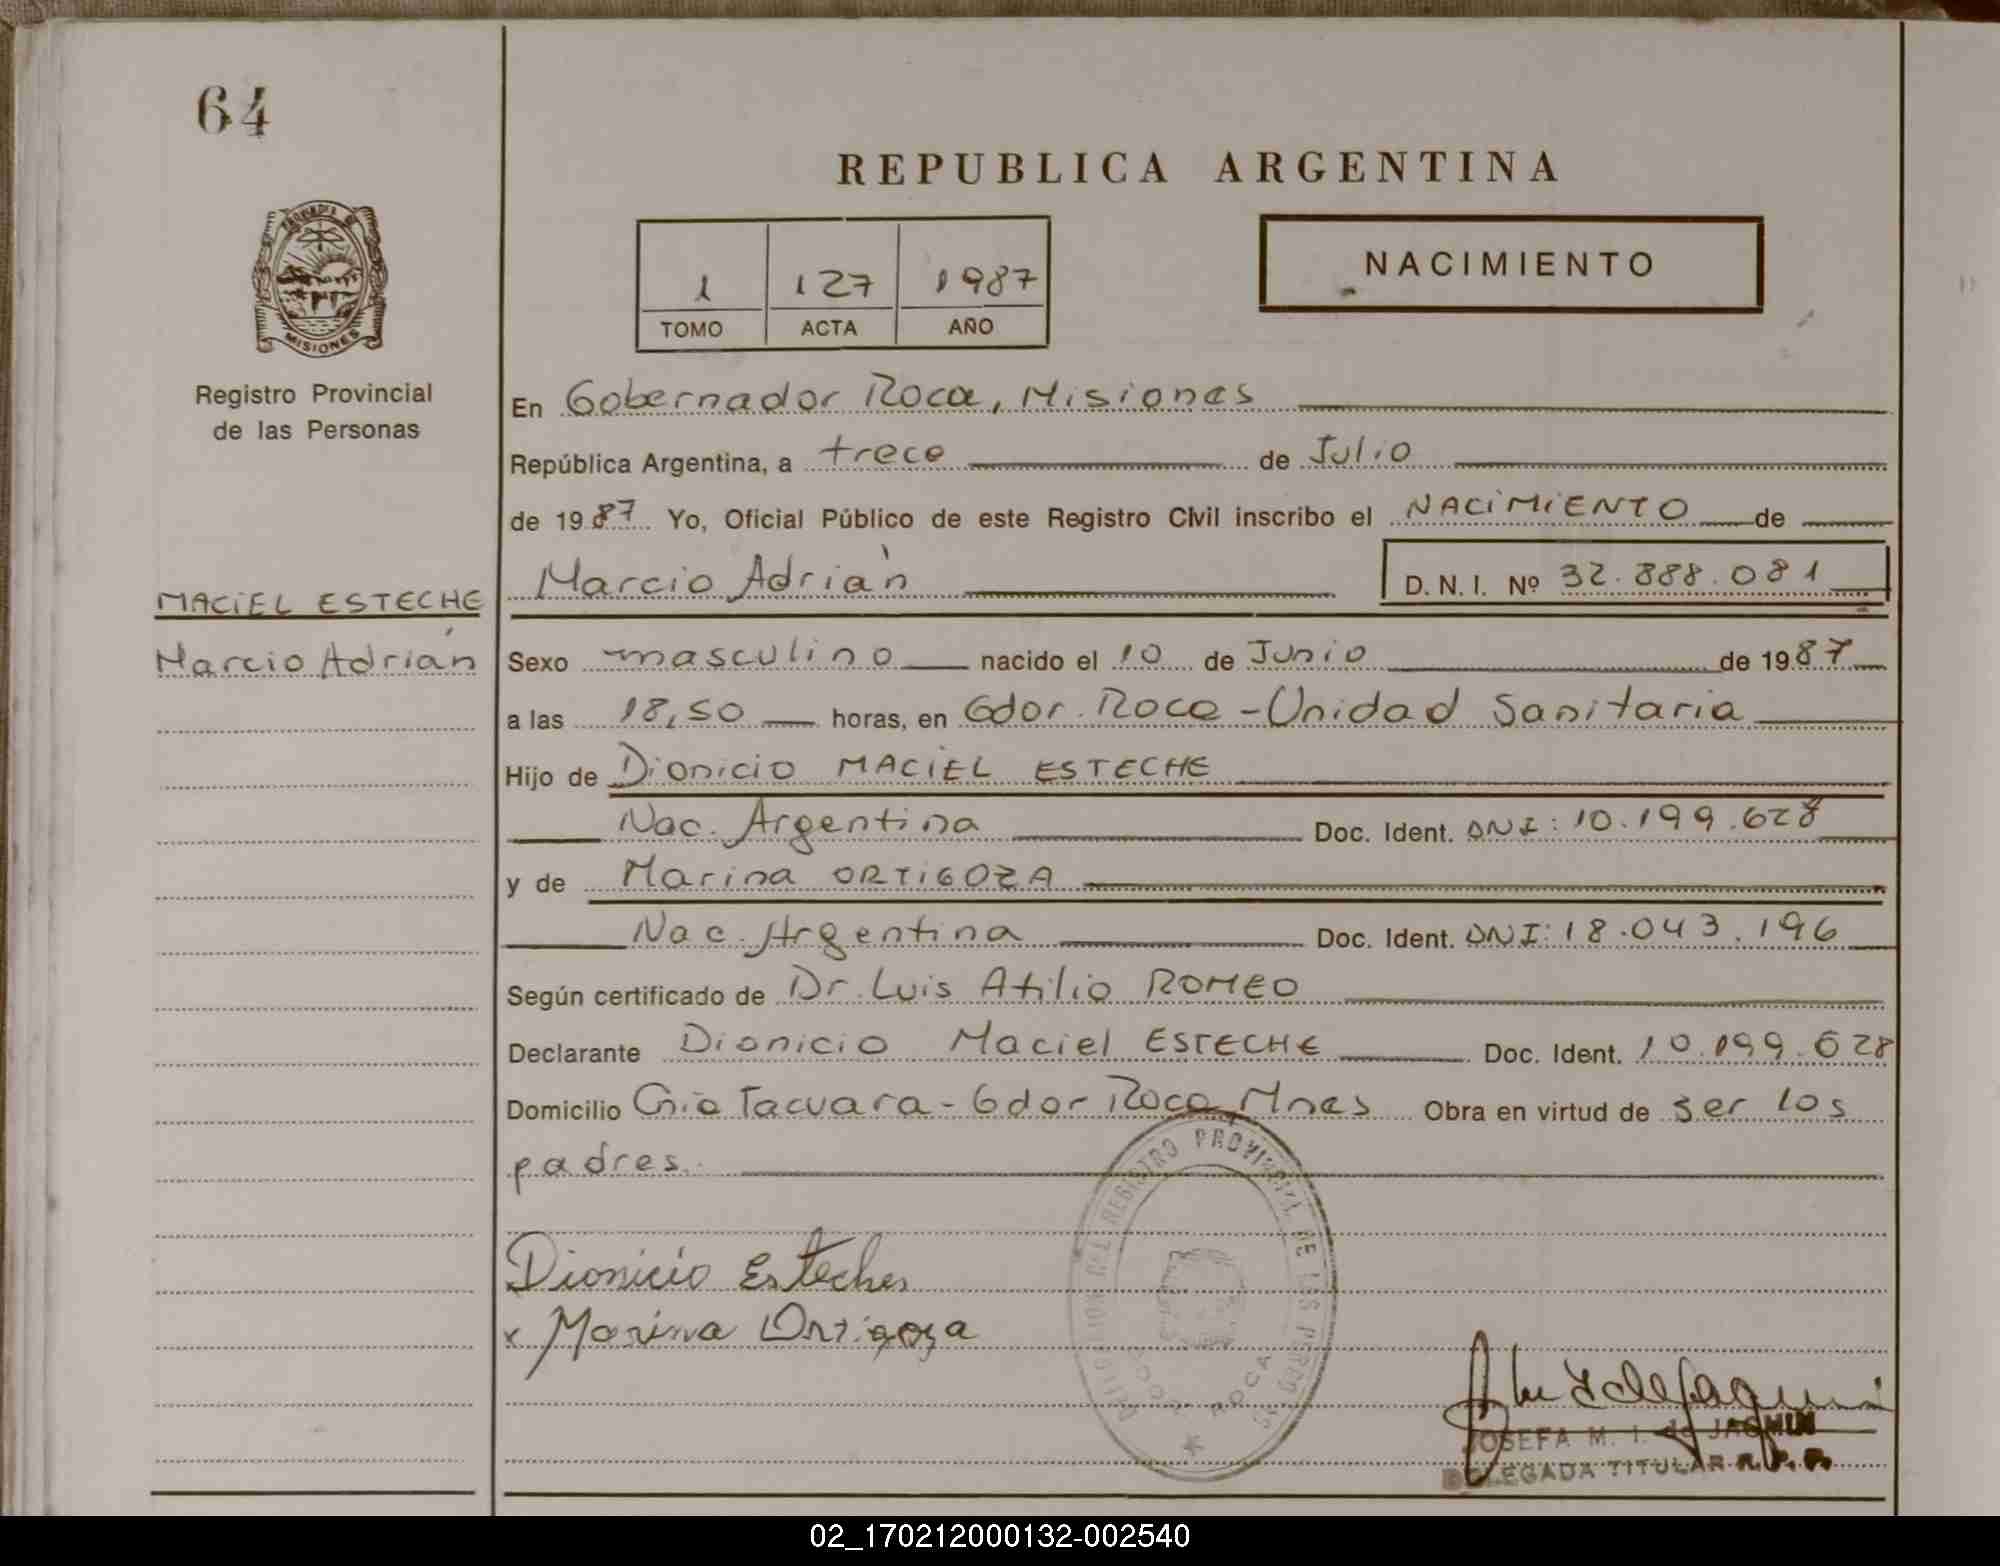 64
REPUBLICA ARGENTINA
1 127 1987
TOMO ACTA AÑO
NACIMIENTO
PROVINCIA DE
MISIONES
Registro Provincial
de las Personas
En Gobernador Roca, Misiones
República Argentina, a trece de Julio
de 1987 Yo, Oficial Público de este Registro Civil inscribo el NACIMIENTO de
Marcio Adrián D. N. I. Nº 32.888.081
MACIEL ESTECHE
Marcio Adrián
Sexo masculino nacido el 10 de Junio de 1987
a las 18,50 horas, en Gdor. Roca - Unidad Sanitaria
Hijo de Dionicio MACIEL ESTECHE
Nac. Argentina Doc. Ident. DNI: 10.199.628
y de Marina ORTIGOZA
Nac. Argentina Doc. Ident. DNI: 18.043.196
Según certificado de Dr. Luis Atilio ROMEO
Declarante Dionicio Maciel ESTECHE Doc. Ident. 10.199.628
Domicilio Cnia Tacuara - Gdor Roca Mnes Obra en virtud de ser los
padres.
DELEGACION DEL REGISTRO PROVINCIAL DE LAS PERSONAS
GDOR. ROCA
Dionicio Esteche
x Marina Ortigoza
JOSEFA M. I. de JACMIN
DELEGADA TITULAR R. P. P.
02_170212000132-002540